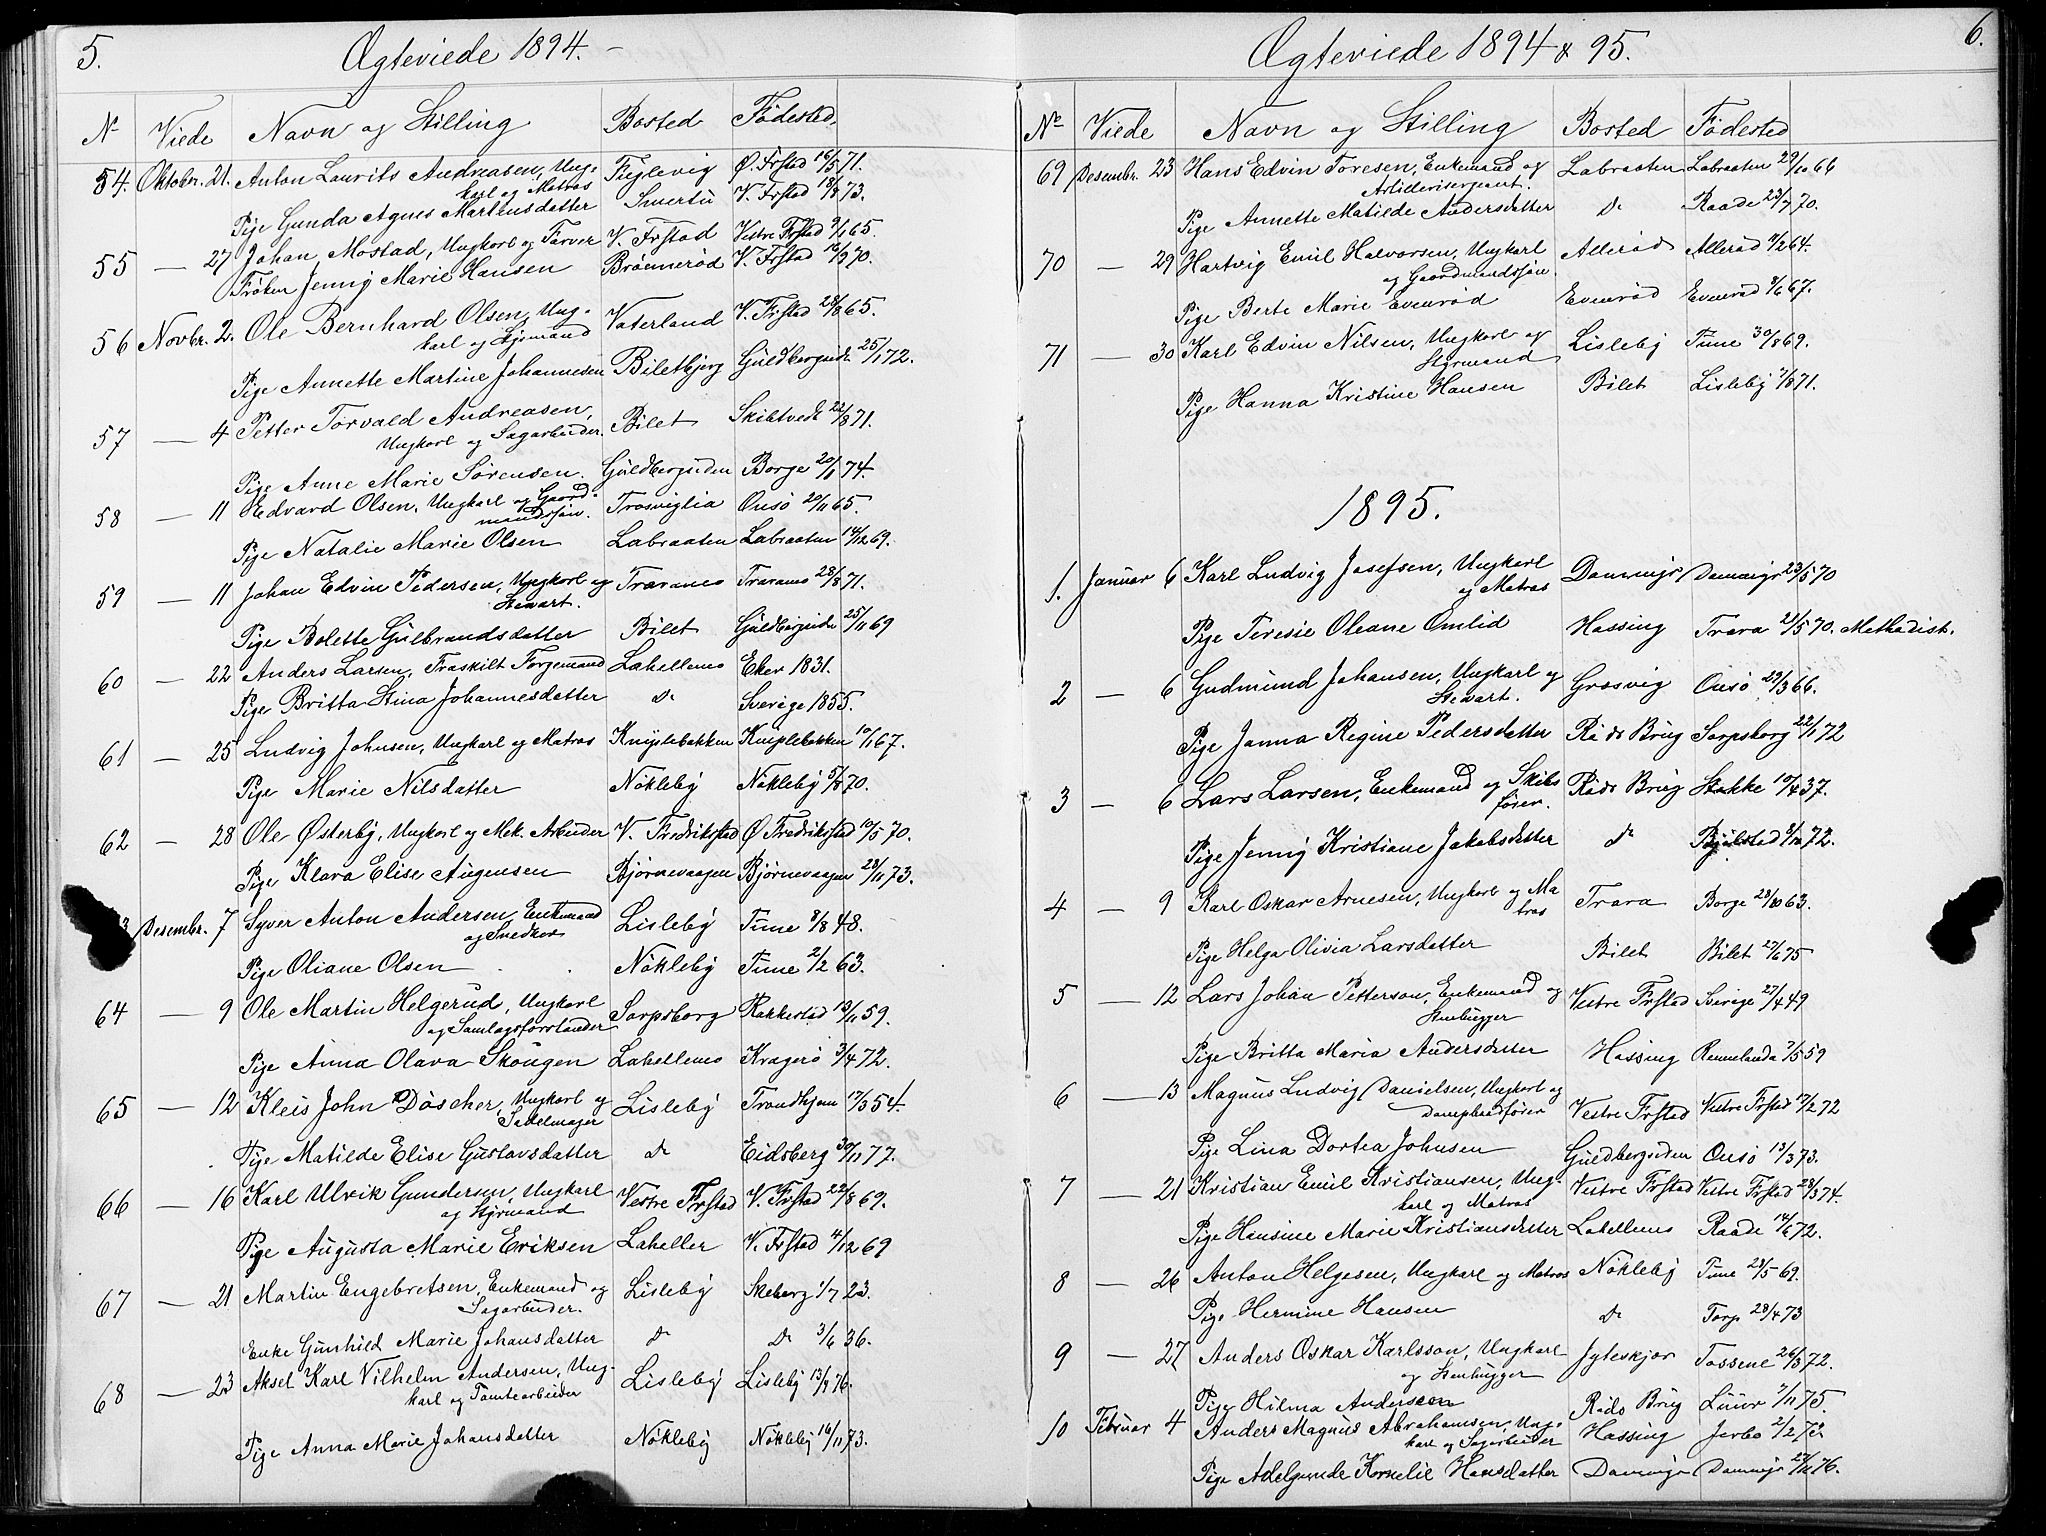 5.
Ægteviede 1894. –
No Viede Navn og Stilling Bosted Fødested
54. Oktobr. 21. Anton Laurits Andreasen, Ung- Fuglevig Ø. Frstad 16/5 71.
karl og Matros
Pige Gunda Agnes Martinsdatter Smertu V. Frstad 18/8 73.
55 — 27 Johan Mostad, Ungkarl og Farver V. Frstad Vestre Frstad 9/1 65.
Frøken Jenny Marie Hansen Brönnerød V. Frstad 16/9 70.
56 Novbr. 2. Ole Bernhard Olsen, Ung- Vaterland V. Frstad 28/8 65.
karl og Styrmand
Pige Annette Martine Johannesen Biletbjerg Guldbergsid. 25/1 72.
57 — 4 Petter Torvald Andreasen, Bilet Skibtvedt 22/8 71.
Ungkarl og Sagarbeider.
Pige Anne Marie Sörensen. Guldbergsiden Borge 20/1 74.
58 — 11 Edvard Olsen, Ungkarl og Gaard- Trosviglia Onsö 20/11 65.
mandssön.
Pige Natalie Marie Olsen Labraaten Labraaten 14/12 69.
59 — 11 Johan Edvin Pedersen, Ungkarl og Traranes Traranes 28/8 71.
Stevart.
Pige Bolette Gulbrandsdatter Bilet Guldbergsiden 25/11 69
60 — 22 Anders Larsen, Fraskilt Forgemand Lahellemo Eker 1831.
Pige Britta Stina Johannesdatter do Sverige 1855.
61 — 25 Ludvig Johnsen, Ungkarl og Matros Kniplebakken Kniplebakken 10/1 67.
Pige Marie Nilsdatter Nökleby Nökleby 5/8 70.
62 — 28 Ole Østerby, Ungkarl og Mek. Arbeider V. Fredrikstad Ø Fredrikstad 10/5 70.
Pige Klara Elise Augensen Bjørnevaagen Bjørnevaagen 28/11 73.
3 Desembr. 7 Syver Anton Andersen, Enkemand Lisleby Tune 8/8 48.
og Snedker
Pige Oliane Olsen Nökleby Tune 2/2 63.
64 — 9 Ole Martin Helgerud, Ungkarl Sarpsborg Rakkestad 13/11 59.
og Samlagsforstander
Pige Anna Olava Skougen Lahellemo Kragerö 3/4 72.
65 — 12 Kleis John Döscher, Ungkarl og Lisleby Trondhjem 17/3 54.
Sadelmager
Pige Matilde Elise Gustavsdatter do Eidsberg 30/11 77.
66 — 16 Karl Ulrik Gundersen, Ungkarl Vestre Frstad V. Frstad 22/8 69.
og Styrmand
Pige Augusta Marie Eriksen Laheller V. Frstad 4/12 69
67 — 21 Martin Engebretsen, Enkemand og Lisleby Skeberg 1/7 23.
Sagarbeider.
Enke Gunhild Marie Johansdatter do do 3/6 36.
68 — 23 Aksel Karl Vilhelm Andersen, Ung- Lisleby Lisleby 13/9 76.
karl og Tomtearbeider
Pige Anna Marie Johansdatter Nökleby Nökleby 16/11 73.
6.
Ægteviede 1894 & 95.
No Viede Navn og Stilling Bosted Fødested
69 Desembr. 23 Hans Edvin Toresen, Enkemand og Labraaten Labraaten 29/10 66
Artillerisergeant.
Pige Annette Matilde Andersdatter do Raade 23/7 70.
70 — 29 Hartvig Emil Halvorsen, Ungkarl Alleröd Alleröd 11/2 64.
og Gaardmandssön.
Pige Berte Marie Evenröd Evenröd Evenröd 9/6 67.
71 — 30 Karl Edvin Nilsen, Ungkarl og Lisleby Tune 30/8 69.
Styrmand
Pige Hanna Kristine Hansen Bilet Lisleby 7/8 71.
1895.
1. Januar 6 Karl Ludvig Josefsen, Ungkarl Dammyr Dammyr 23/5 70
og Matros
Pige Teresie Oleane Omlid Hassing Trara 21/5 70. Methodist.
2 — 6 Gudmund Johansen, Ungkarl og Gresvig Onsö 29/3 66.
Stevart.
Pige Janna Regine Pedersdatter Råds Brug Sarpsborg 22/1 72
3 — 6 Lars Larsen, Enkemand og Skibs Råds Brug Stokke 10/4 37.
förer.
Pige Jenny Kristiane Jakobsdatter do 8/10 72.
4 — 9 Karl Oskar Arnesen, Ungkarl og Ma Trara Borge 28/10 63.
tros
Pige Helga Olivia Larsdatter Bilet Bilet 27/6 75
5 — 12 Lars Johan Petterson, Enkemand og Vestre Frstad Sverige 27/4 49
Stenhugger
Pige Britta Maria Andersdatter Hassing Rennelanda 7/5 59
6 — 13 Magnus Ludvig Danielsen, Ungkarl og Vestre Frstad Vestre Frstad 12/2 72
Dampbaadförer
Pige Lina Dortea Johnsen Guldbergsiden Onsö 13/3 73.
7 — 21 Kristian Emil Kristiansen, Ung- Vestre Frstad Vestre Frstad 28/3 74.
karl og Matros
Pige Hansine Marie Kristiansdatter Lahellemo Raade 14/6 72.
8 — 26 Anton Helgesen, Ungkarl og Matros Nökleby Tune 23/5 69.
Pige Hermine Hansen do Torp 28/4 73
9 — 27 Anders Oskar Karlsson, Ungkarl Jyteskjær Tossene 26/3 72.
og Stenhugger
Pige Hilma Andersen Råds Brug Luur 7/11 75.
10 Februar 4 Anders Magnus Abrahamsen, Ung- Hassing Jerbo 2/2 72
karl og Sagarbeider
Pige Adelgunde Kornelie Hansdatter Dammyr Dammyr 27/11 76.